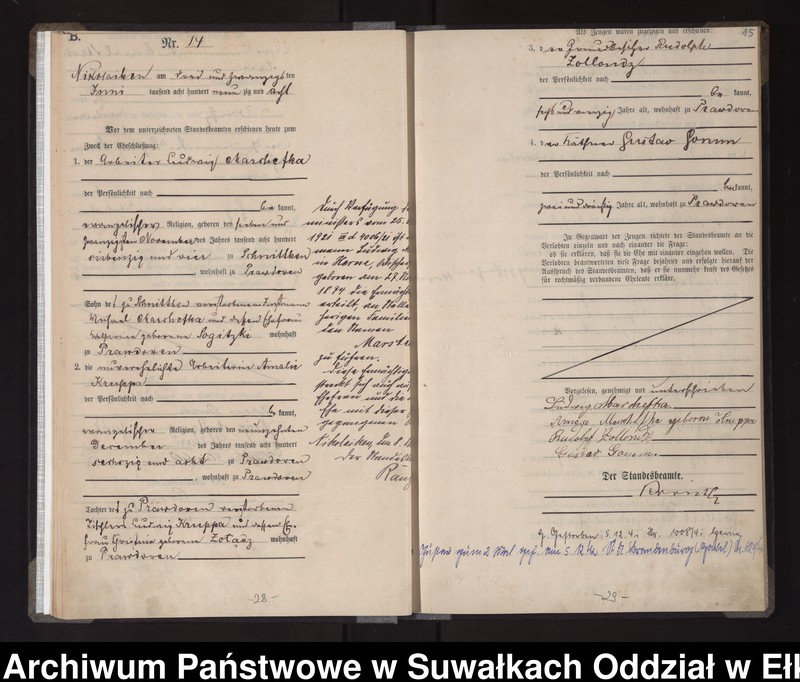 B.
Nr. 14
Nikolaiken am drei und zwanzigsten
Juni tausend acht hundert neun zig und acht
Vor dem unterzeichneten Standesbeamten erschienen heute zum
Zweck der Eheschließung:
1. der Arbeiter Ludwig Marchefka
der Persönlichkeit nach
be kannt,
evangelischer Religion, geboren den sieben und
zwanzigsten November des Jahres tausend acht hundert
siebenzig und vier zu Schnittken
, wohnhaft zu Prawdowen
Sohn des zu Schnittken verstorbenen
Michael Marchefka und dessen Ehefrau
Catharine geborenen Sogitzki wohnhaft
zu Prawdowen
2. die unverehelichte Arbeiterin Amalie
Kruppa
der Persönlichkeit nach
be kannt,
evangelischer Religion, geboren den neunzehnten
December des Jahres tausend acht hundert
sechszig und acht zu Prawdowen
, wohnhaft zu Prawdowen
Tochter des zu Prawdowen verstorbenen
Tischlers Ludwig Kruppa und dessen Ehe-
frau Christine geborene Zotacz wohnhaft
zu Prawdowen
- 28 -
Durch Verfügung
ministers vom 25.
1921
mann Ludwig
in Herne,
geboren am 27. No
1874 die Ermächt
erteilt, an Stelle
herigen Familien
den Namen
zu führen.
Diese Ermächtigu
streckt sich auf
Ehefrau und die
Ehe mit dieser
gegangenen
Nikolaiken, den 8.
Der Standesb
15
Als Zeugen waren zugezogen und erschienen:
3. der Grundbesitzer Rudolph
Zollondz
der Persönlichkeit nach
be kannt,
sechs und vierzig Jahre alt, wohnhaft zu Prawdowen
4. der Käthner Gustav Gonum
der Persönlichkeit nach
be kannt,
zwei und dreißig Jahre alt, wohnhaft zu Prawdowen
In Gegenwart der Zeugen richtete der Standesbeamte an die
Verlobten einzeln und nach einander die Frage:
ob sie erklären, daß sie die Ehe mit einander eingehen wollen. Die
Verlobten beantworteten diese Frage bejahend und erfolgte hierauf der
Ausspruch des Standesbeamten, daß er sie nunmehr kraft des Gesetzes
für rechtmäßig verbundene Eheleute erkläre.
Vorgelesen, genehmigt und unterschrieben
Ludwig Marchefka
Marchefka geborne Kruppa
Rudolf Zollondz
Gustav Gonum
Der Standesbeamte.
Gestorben 5.12.41 Nr. 1008/41
- 29 -
Archiwum Państwowe w Suwałkach Oddział w Ełk